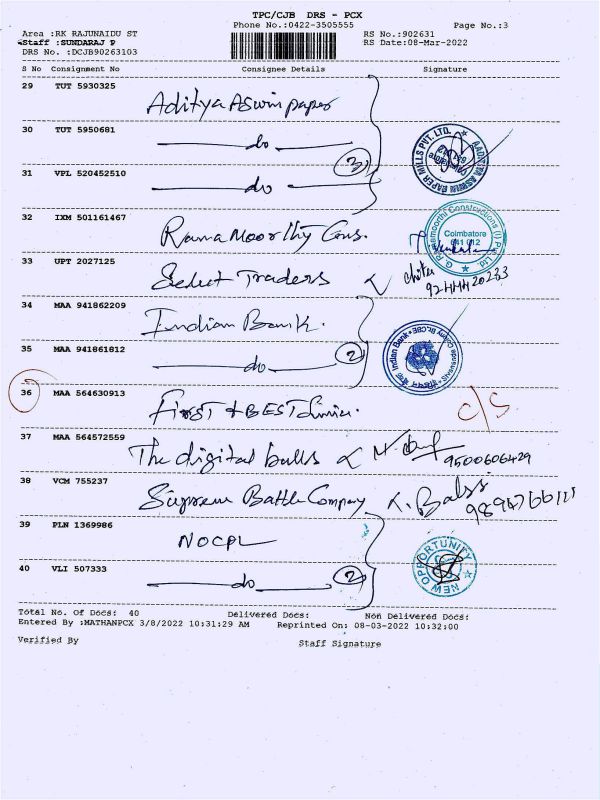 TPC/CJB DRS - PCX
Phone No.:0422-3505555
Page No.:3
Area :RK RAJUNAIDU ST
RS No.:902631
Staff :SUNDARAJ P
RS Date:08-Mar-2022
DRS No. :DCJB90263103
S No Consignment No Consignee Details Signature
29 TUT 5930325
Aditya Aswin paper
30 TUT 5950681
do
3
31 VPL 520452510
do
32 IXM 501161467
Rama Moorthy Cons.
Coimbatore
641 012
33 UPT 2027125
Select Traders
34 MAA 941862209
Indian Bank.
35 MAA 941861812
do 2
Indian Bank
36 MAA 564630913
First & BEST
C/S
37 MAA 564572559
The digital balls
9500606429
38 VCM 755237
Supreme Battle Company
39 PLN 1369986
NOCPL
NEW OPPORTUNITY
40 VLI 507333
do 2
Total No. Of Docs: 40 Delivered Docs: Non Delivered Docs:
Entered By :MATHANPCX 3/8/2022 10:31:29 AM Reprinted On: 08-03-2022 10:32:00
Verified By Staff Signature